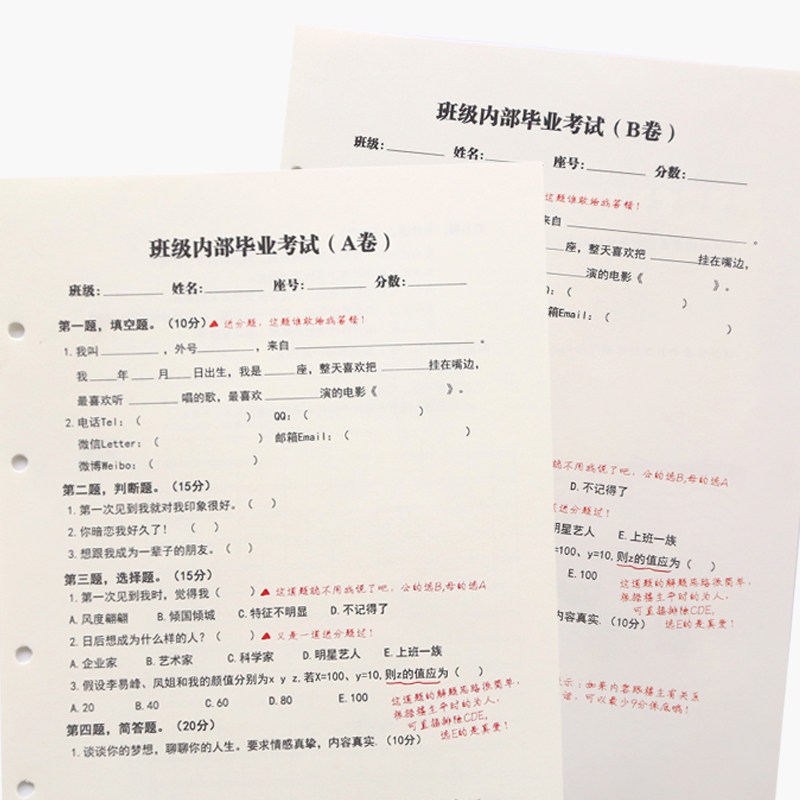 班级内部毕业考试（B卷）
班级：______ 姓名：______ 座号：______ 分数：______
这题谁敢给我答错！
来自______。
座，整天喜欢把______挂在嘴边，
______演的电影《 》。
Q：（ ）
箱Email：（ ）
就不用我慌了吧，公的选B,母的选A
D. 不记得了
送分题过！
明星艺人 E. 上班一族
=100、y=10, 则z的值应为（ ）
E. 100
这道题的解题思路很简单，
根据楼主平时的为人，
可直接排除CDE，
选E的是真爱！
内容真实.（10分）
示：如果内容跟楼主有关系
话，可以最少9分保底哦！
班级内部毕业考试（A卷）
班级：______ 姓名：______ 座号：______ 分数：______
第一题，填空题。（10分）▲送分题，这题谁敢给我答错！
1. 我叫______，外号______，来自______。
我____年____月____日出生，我是____座，整天喜欢把______挂在嘴边，
最喜欢听______唱的歌，最喜欢______演的电影《 》。
2. 电话Tel：（ ） QQ：（ ）
微信Letter：（ ） 邮箱Email：（ ）
微博Weibo：（ ）
第二题，判断题。（15分）
1. 第一次见到我就对我印象很好。（ ）
2. 你暗恋我好久了！（ ）
3. 想跟我成为一辈子的朋友。（ ）
第三题，选择题。（15分）
1. 第一次见到我时，觉得我（ ）▲这道题就不用我慌了吧，公的选B,母的选A
A. 风度翩翩 B. 倾国倾城 C. 特征不明显 D. 不记得了
2. 日后想成为什么样的人？（ ）▲又是一道送分题过！
A. 企业家 B. 艺术家 C. 科学家 D. 明星艺人 E. 上班一族
3. 假设李易峰、凤姐和我的颜值分别为x y z,若X=100、y=10,则z的值应为（ ）
A. 20 B. 40 C. 60 D. 80 E. 100
这道题的解题思路很简单，
根据楼主平时的为人，
可直接排除CDE，
选E的是真爱！
第四题，简答题。（20分）
1. 谈谈你的梦想，聊聊你的人生。要求情感真挚，内容真实.（10分）